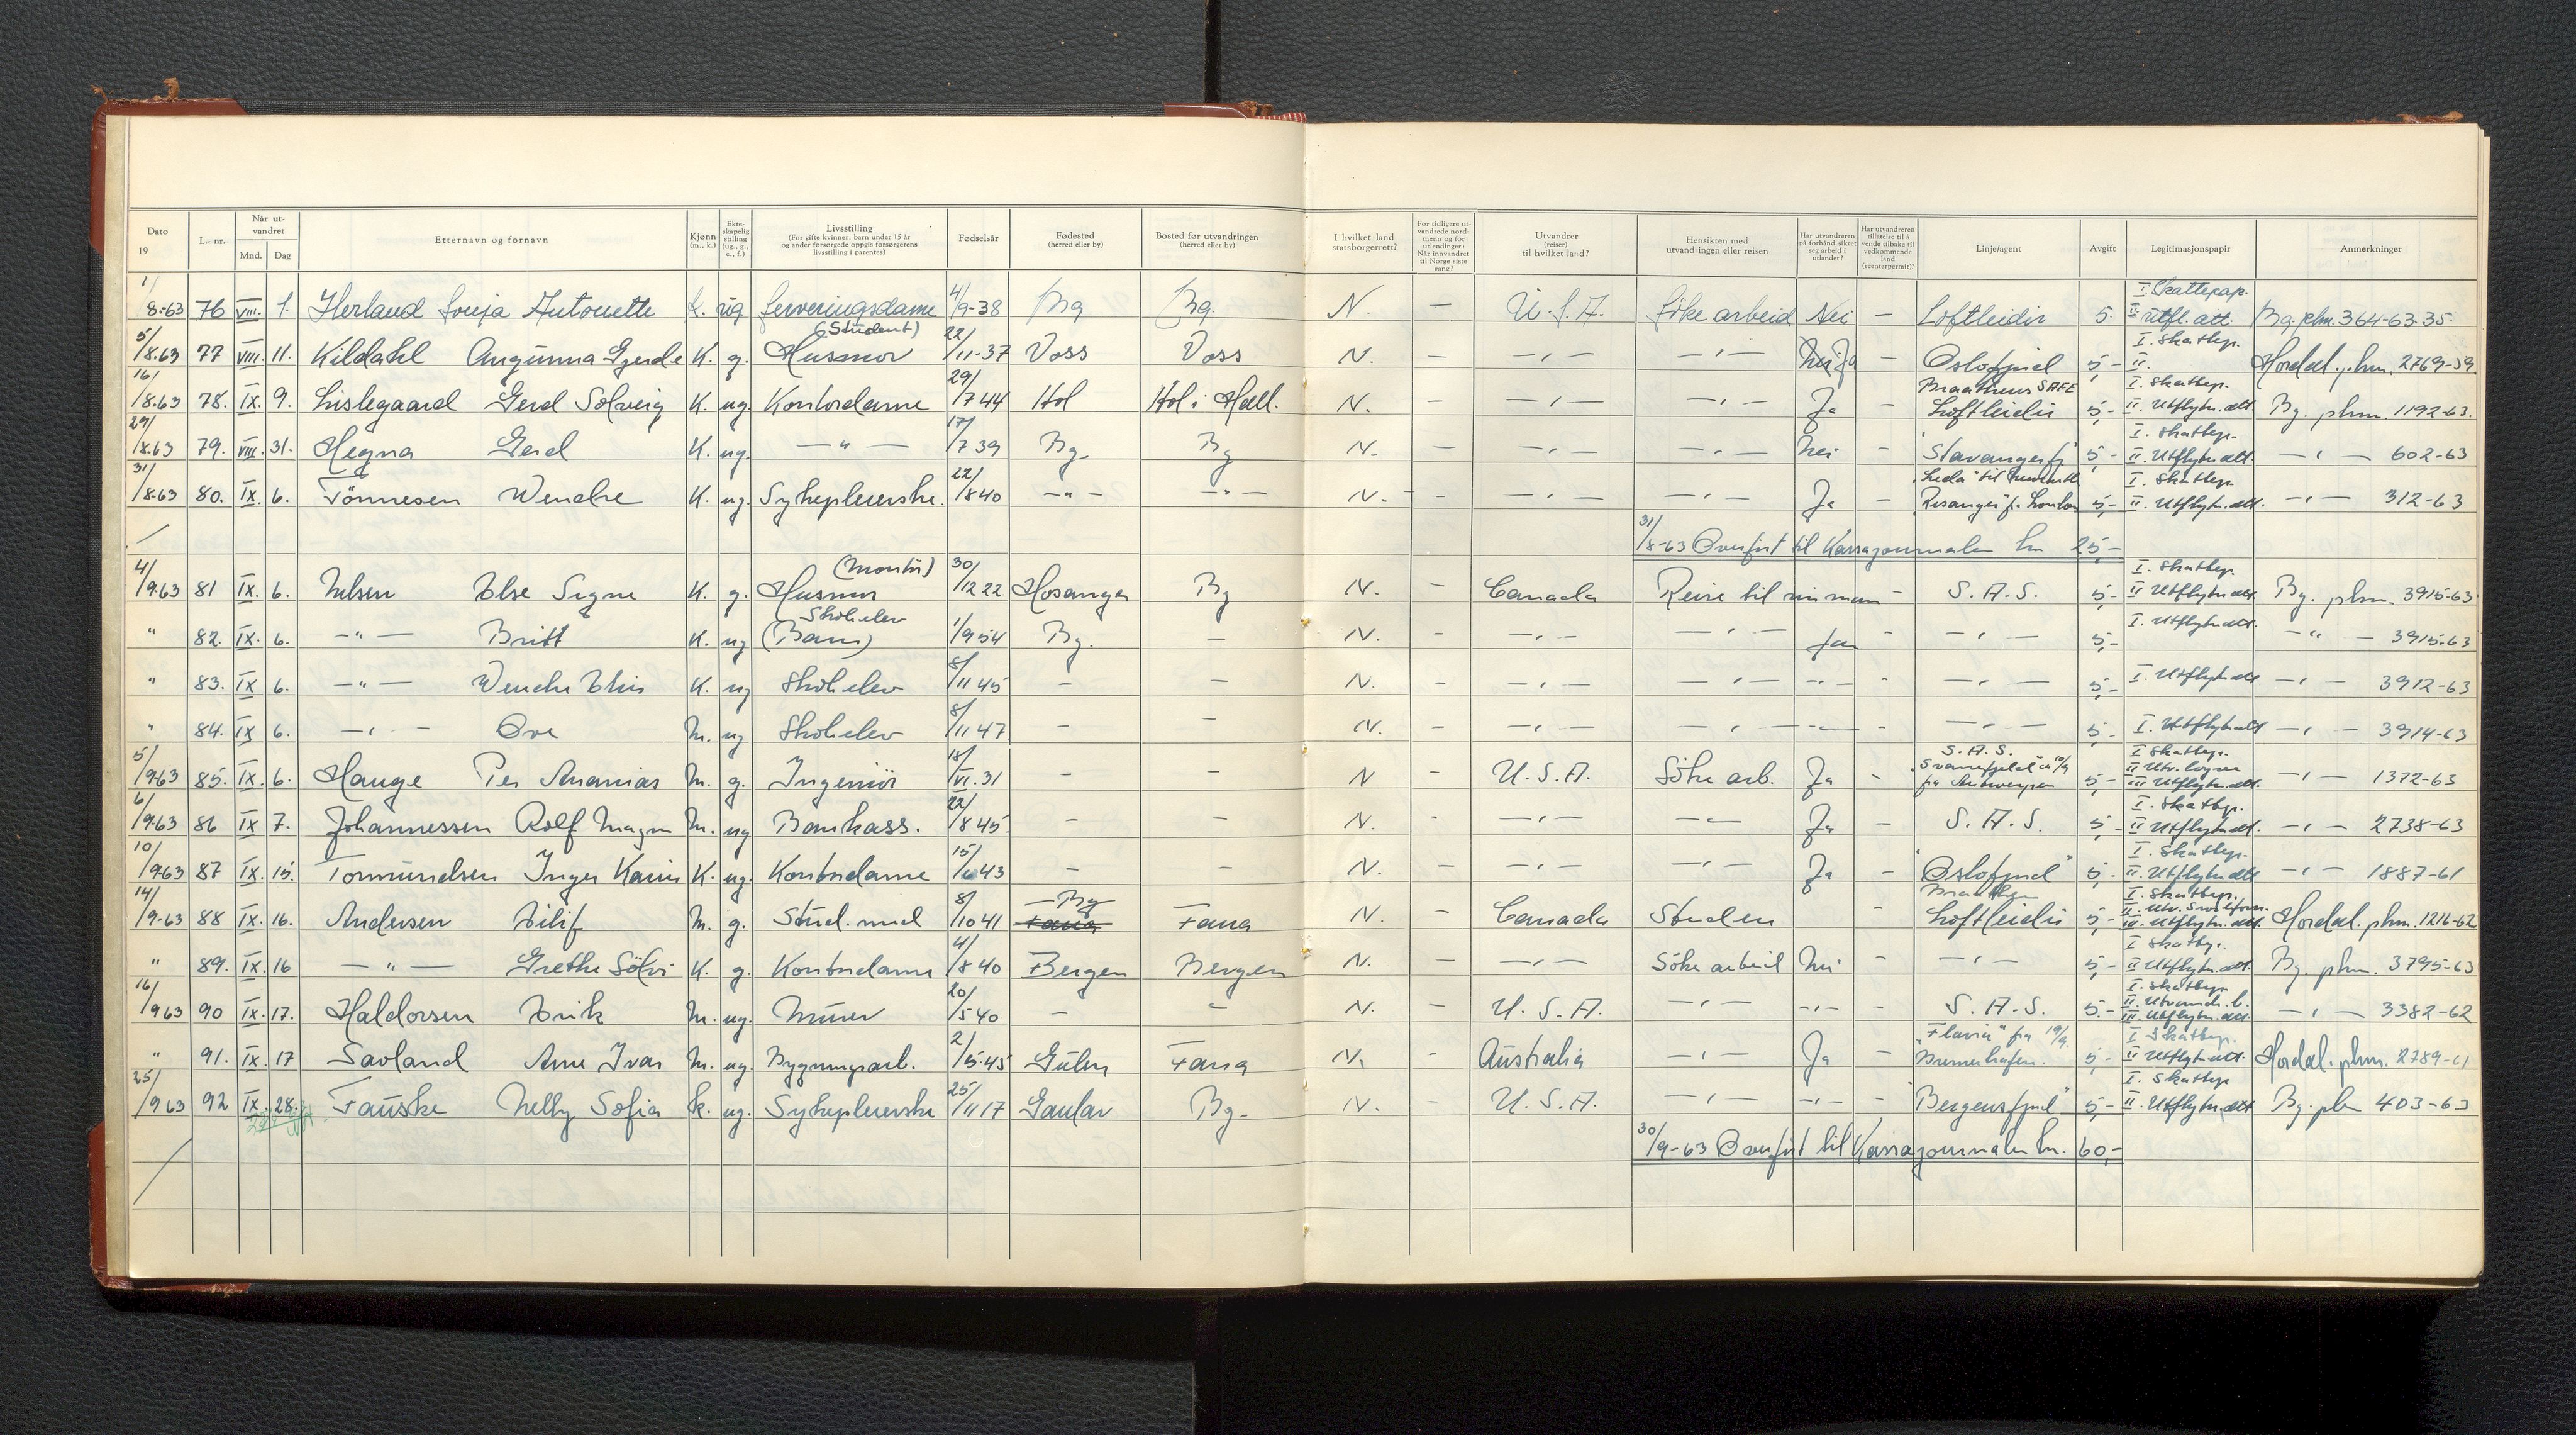 Dato 19 L.-nr. Når utvandret Mnd. Dag Etternavn og fornavn Kjønn (m., k.) Ekteskapelig stilling (ug., g., e., f.) Livsstilling (For gifte kvinner, barn under 15 år og andre forsørgede oppgis forsørgerens livsstilling i parentes) Fødselsår Fødested (herred eller by) Bosted før utvandringen (herred eller by) I hvilket land statsborgerrett? For tidligere utvandrede nordmenn og for utlendinger: Når innvandret til Norge siste gang? Utvandrer (reiser) til hvilket land? Hensikten med utvandringen eller reisen Har utvandreren på forhånd sikret seg arbeid i utlandet? Har utvandreren tillatelse til å vende tilbake til vedkommende land (reenterpermit)? Linje/agent Avgift Legitimasjonspapir Anmerkninger
1/8-63 76 VIII. 1. Herland Sonja Antonette k. ug Serveringsdame 4/9-38 Bg Bg. N. — U.S.A. Söke arbeid Nei — Loftleidir 5. I Skattepap. II utfl. att. Bg. phm. 364-63-35.
5/8.63 77 VIII. 11. Kildahl Gjerde K. g. (Student) Husmor 22/11-37 Voss Voss N. — —,— —,— Ja — Oslofjord 5,- I. Skattep. II. Hordal. phm. 2769-59.
16/8.63 78. IX. 9. Lislegaard Gerd Solveig K. ug. Kontordame 29/7 44 Hol Hol i Hall. N. — —,— —,— Ja — Braathens SAFE Loftleidir 5,- I. Skattep. II. Utflytn. att. Bg. phm. 1192-63.
29/8.63 79. VIII. 31. Hegna Gerd K. ug. —"— 17/7 39 Bg. Bg N. — —,— —,— Nei — "Stavangerfj" 5,- I. Skattep. II. Utflytn. att. —,— 602-63
31/8.63 80. IX. 6. Tönnesen Wenche K. ug. Sykepleierske. 22/8 40 —"— —"— N. — —,— —,— Ja — "Leda" til "Risanger" fr. London 5,- I. Skattep. II. Utflytn. att. —,— 312-63
31/8-63 Overført til Kassajournalen kr. 25,-
4/9.63 81 IX. 6. Nilsen Else Signe K. g. (Montör) Husmor 30/12 22 Hosanger Bg N. — Canada Reise til sin mann — S.A.S. 5,- I. Skattep. II Utflytn. att. Bg. phm. 3915-63
" 82. IX. 6. —"— Britt K. ug Skoleelev (Barn) 1/9 54 Bg. — N. — —,— —,— — —,— 5,- I. Utflytn. att. —"— 3915-63
" 83. IX 6. —"— Wenche K. ug Skoleelev 8/11 45 — — N. — —,— —,— —"— — —,— 5,- I. Utflytn. att —,— 3912-63
" 84. IX 6. —,— Ove M. ug Skoleelev 8/11 47 — — N. — —,— —,— — — —,— 5,- I. Utflytn. att —,— 3914-63
5/9.63 85. IX. 6. Hauge Per Ananias M. g. Ingeniör 18/VI. 31 — — N — U.S.A. Söke arb. Ja — S.A.S. fra Antwerpen 5,- I Skattep. II Utv. III Utflytn. att. —,— 1372-63
6/9.63 86 IX 7. Johannessen Rolf Magne M. ug Bankass. 22/8 45 — — N. — —,— —"— Ja — S.A.S. 5,- I. Skattep. II Utflytn. att. —,— 2738-63
10/9.63 87 IX. 15. Tormundsen Inger Karin K. ug. Kontordame 15/6 43 — — N. — —,— —,— Ja — "Oslofjord" 5,- I. Skattep. II. Utflytn. att —,— 1887-61
14/9.63 88 IX. 16. Andersen Eilif M. g. Stud. med 8/10 41 Bg Fana Fana N. — Canada Studier — Loftleidir 5,- I. Skattep. III. Utflytn. att. Hordal. phm. 1216-62
" 89. IX. 16 —"— Grethe Sölvi K. g. Kontordame 4/8 40 Bergen Bergen N. — —,— Söke arbeid Nei — —,— 5,- I Skattep. II Utflytn. att. Bg. phm. 3795-63
16/9 63 90 IX. 17. Haldorsen Erik M. ug. Murer 20/5 40 — — N. — U.S.A. —,— —,— S.A.S. 5,- I. Skattep. II. Utvandr. b. III. Utflytn. att. —,— 3382-62
" 91. IX 17 Savland Arne Ivar M. ug. Bygningsarb. 2/5.45 Gulen Fana N. — Australia —,— Ja — "Flavia" fra 19/9. Bremerhafen. 5,- I Skattep. II Utflytn. att. Hordal. phm. 2789-61
25/9 63 92 IX. 28. Fauske Nelly Sofia k. ug. Sykepleierske 25/11 17 Gaular Bg. N. — U.S.A. —,— —,— "Bergensfjord" 5,- I. Skattep II. Utflytn. att Bg. phm 403-63
30/9-63 Overført til Kassajournalen kr. 60,-